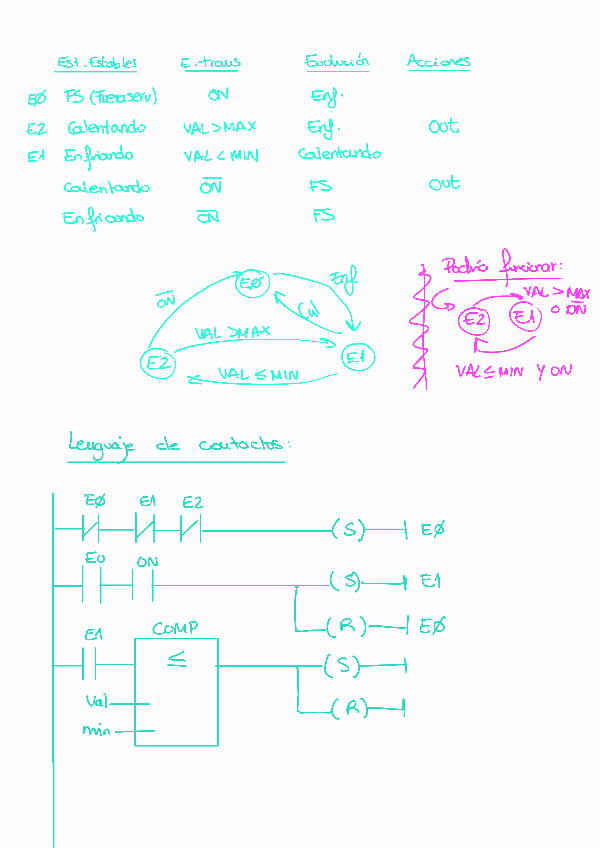 Est. Estables E. trans Evolución Acciones
EØ FS (Fueraserv) ON Enf.
E2 Calentando VAL > MAX Enf. Out
E1 Enfriando VAL < MIN Calentando
Calentando O̅N̅ FS Out
Enfriando O̅N̅ FS
EØ Enf
O̅N̅ Cal
VAL > MAX
E2 E1
VAL ≤ MIN
Podría funcionar:
VAL > MAX
E2 E1 o O̅N̅
VAL ≤ MIN Y ON
Lenguaje de contactos:
EØ E1 E2
(S) EØ
E0 ON
(S) E1
(R) EØ
E1 COMP
≤ (S)
Val (R)
min